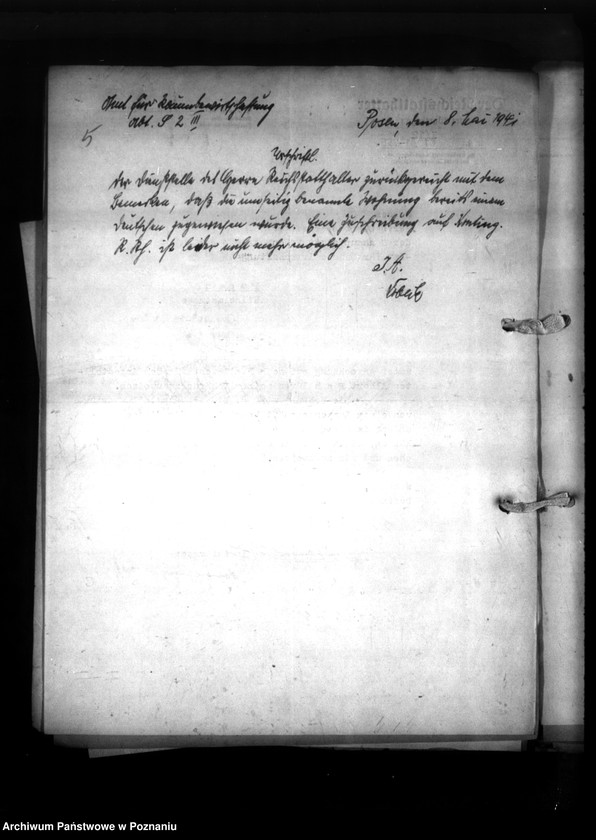 Amt für Raumbewirtschaftung
Abt. S 2 III
Posen, den 8. Mai 1941
5
Urschriftl.
der Dienststelle des Herrn Reichsstatthalter zurückgereicht mit dem
Bemerken, daß die umseitig benannte Wohnung bereits einem
Deutschen zugewiesen wurde. Eine Zuschreibung auf
R. Kh. ist leider nicht mehr möglich.
I. A.
Archiwum Państwowe w Poznaniu